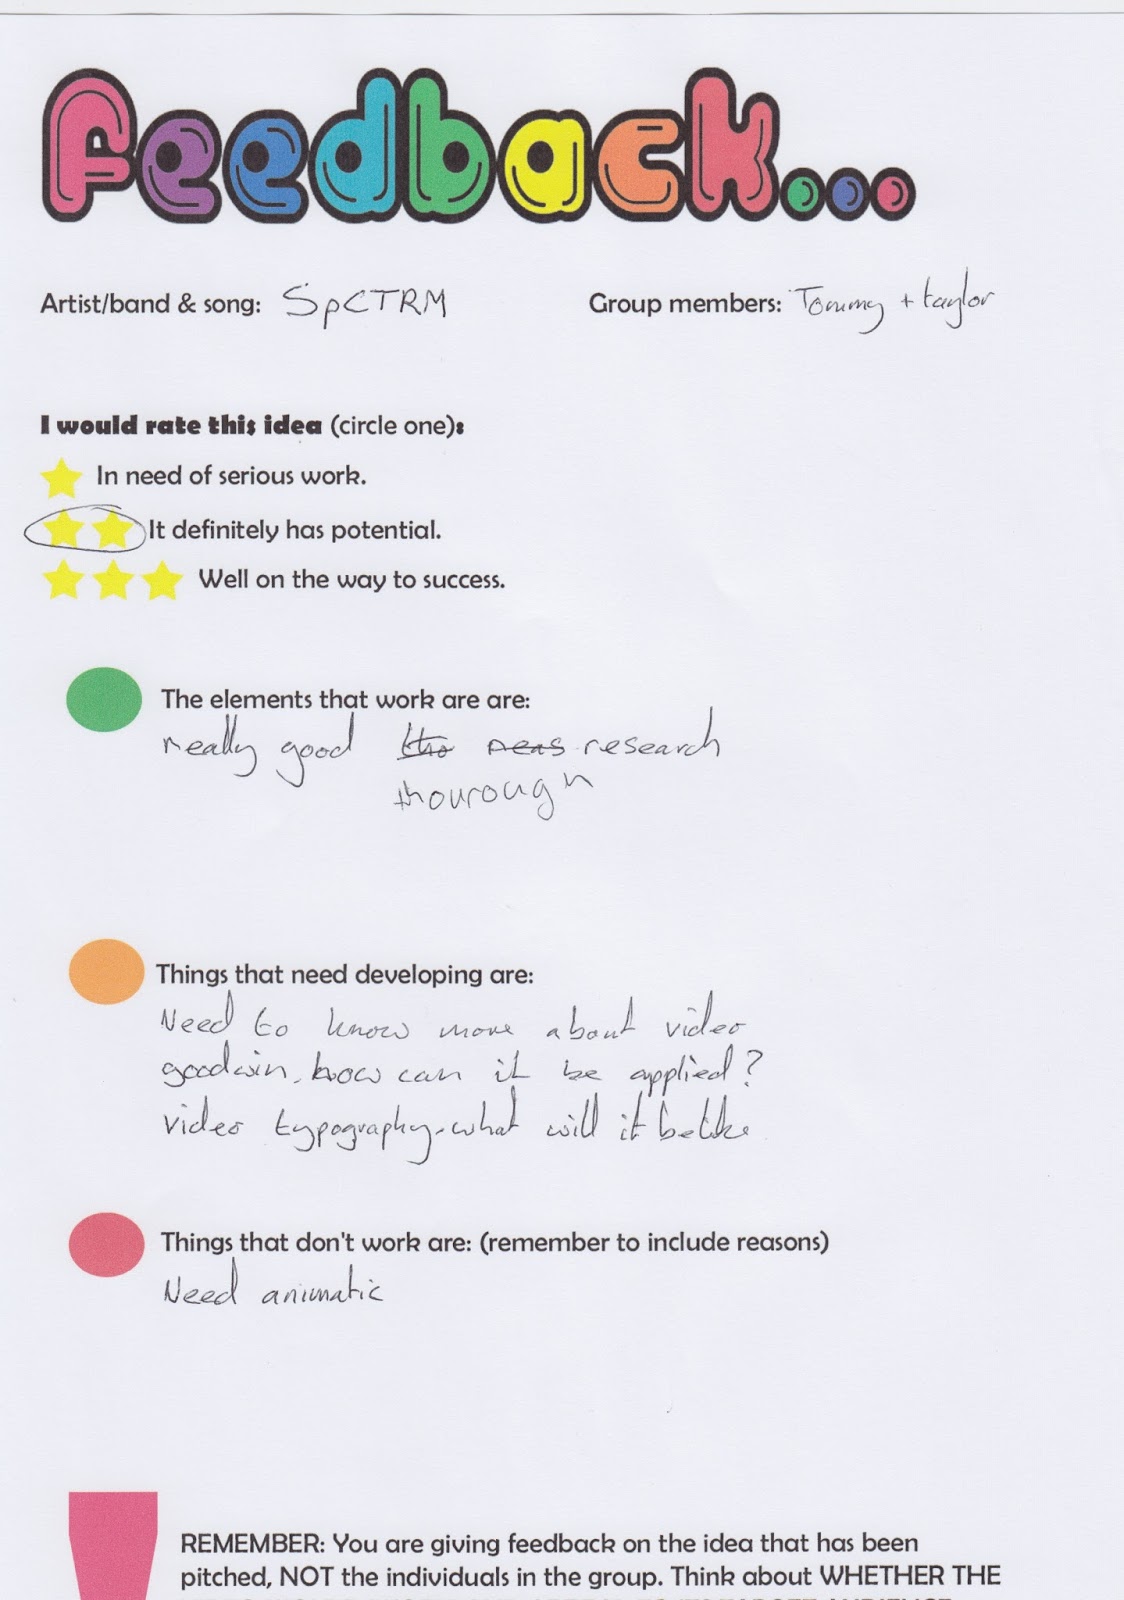 Feedback...
Artist/band & song: SpCTRM Group members: Tommy + taylor
I would rate this idea (circle one):
In need of serious work.
It definitely has potential.
Well on the way to success.
The elements that work are are:
really good research
thourough
Things that need developing are:
Need to know more about video
goodwin. how can it be applied?
video typography. what will it be like
Things that don't work are: (remember to include reasons)
Need animatic
REMEMBER: You are giving feedback on the idea that has been
pitched, NOT the individuals in the group. Think about WHETHER THE